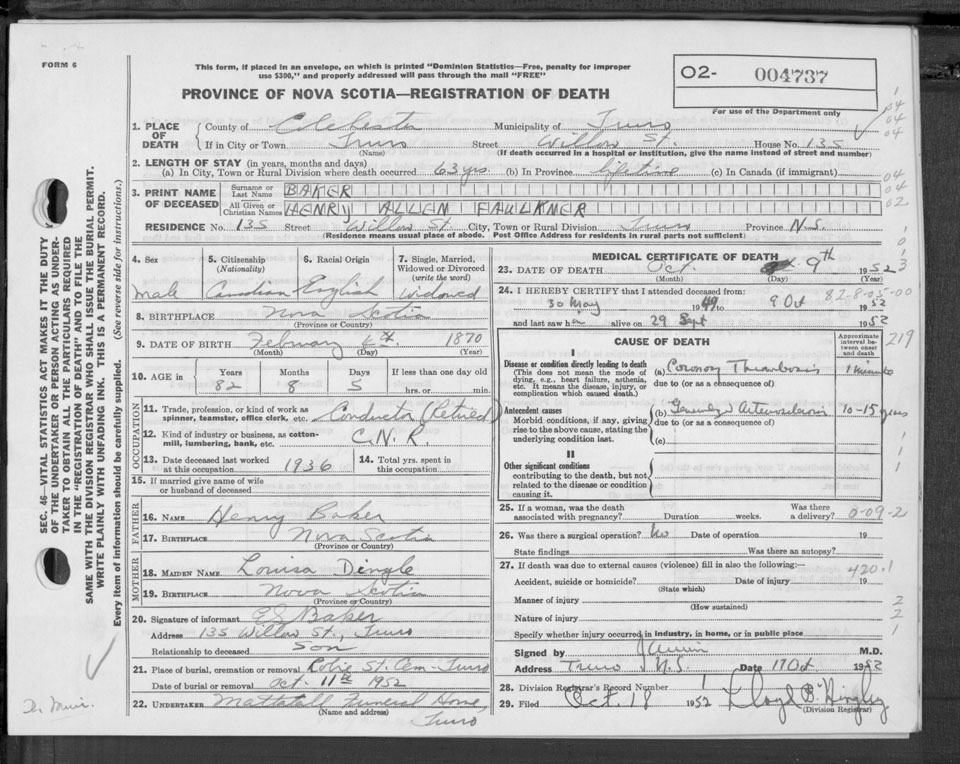 FORM 6
This form, if placed in an envelope, on which is printed "Dominion Statistics—Free, penalty for improper
use $300," and properly addressed will pass through the mail "FREE"
O2- 004737
For use of the Department only
PROVINCE OF NOVA SCOTIA—REGISTRATION OF DEATH
1. PLACE OF DEATH { County of Colchester Municipality of Truro
If in City or Town Truro Street Willow St. House No. 135
(Name) (If death occurred in a hospital or institution, give the name instead of street and number)
2. LENGTH OF STAY (in years, months and days)
(a) In City, Town or Rural Division where death occurred 63 yrs. (b) In Province lifetime (c) In Canada (if immigrant)
3. PRINT NAME OF DECEASED { Surname or Last Name BAKER
All Given or Christian Names HENRY ALLEN FAULKNER
RESIDENCE No. 135 Street Willow St. City, Town or Rural Division Truro Province N.S.
(Residence means usual place of abode. Post Office Address for residents in rural parts not sufficient)
4. Sex 5. Citizenship (Nationality) 6. Racial Origin 7. Single, Married, Widowed or Divorced (write the word)
Male Canadian English Widowed
8. BIRTHPLACE Nova Scotia
(Province or Country)
9. DATE OF BIRTH February 4th 1870
(Month) (Day) (Year)
10. AGE in Years Months Days If less than one day old
82 8 5 hrs. or min.
OCCUPATION
11. Trade, profession, or kind of work as spinner, teamster, office clerk, etc. Conductor (Retired)
12. Kind of industry or business, as cotton-mill, lumbering, bank, etc. C.N.R.
13. Date deceased last worked at this occupation 1936 14. Total yrs. spent in this occupation
15. If married give name of wife or husband of deceased
FATHER
16. NAME Henry Baker
17. BIRTHPLACE Nova Scotia
(Province or Country)
MOTHER
18. MAIDEN NAME Louisa Dingle
19. BIRTHPLACE Nova Scotia
(Province or Country)
20. Signature of informant Baker
Address 135 Willow St., Truro
Relationship to deceased Son
21. Place of burial, cremation or removal Robie St. Cem - Truro
Date of burial or removal Oct. 11th 1952
22. UNDERTAKER Mattatall Funeral Home,
(Name and address) Truro
MEDICAL CERTIFICATE OF DEATH
23. DATE OF DEATH Oct. 9th 1952
(Month) (Day) (Year)
24. I HEREBY CERTIFY that I attended deceased from:
82-8-05-00
30 May 1949 to 9 Oct 1952
and last saw him alive on 29 Sept 1952
219
CAUSE OF DEATH
Approximate interval between onset and death
I
Disease or condition directly leading to death (a) Coronary Thrombosis 1 minute
(This does not mean the mode of dying, e.g., heart failure, asthenia, etc. It means the disease, injury, or complication which caused death.)
due to (or as a consequence of)
Antecedent causes (b) Generalized Arteriosclerosis 10-15 years
Morbid conditions, if any, giving rise to the above cause, stating the underlying condition last.
due to (or as a consequence of)
(c)
II
Other significant conditions
contributing to the death, but not related to the disease or condition causing it.
25. If a woman, was the death associated with pregnancy? Duration weeks. Was there a delivery? 0-09-2
26. Was there a surgical operation? No Date of operation 19
State findings Was there an autopsy?
27. If death was due to external causes (violence) fill in also the following:—
420.1
Accident, suicide or homicide? Date of injury 19
(State which)
Manner of injury
(How sustained)
Nature of injury
Specify whether injury occurred in industry, in home, or in public place
Signed by M.D.
Address Truro N.S. Date 17 Oct 1952
28. Division Registrar's Record Number 1
29. Filed Oct. 18 1952 Lloyd B.
(Division Registrar)
SEC. 46—VITAL STATISTICS ACT MAKES IT THE DUTY
OF THE UNDERTAKER OR PERSON ACTING AS UNDER-
TAKER TO OBTAIN ALL THE PARTICULARS REQUIRED
IN THE "REGISTRATION OF DEATH" AND TO FILE THE
SAME WITH THE DIVISION REGISTRAR WHO SHALL ISSUE THE BURIAL PERMIT.
WRITE PLAINLY WITH UNFADING INK. THIS IS A PERMANENT RECORD.
Every item of information should be carefully supplied. (See reverse side for instructions.)